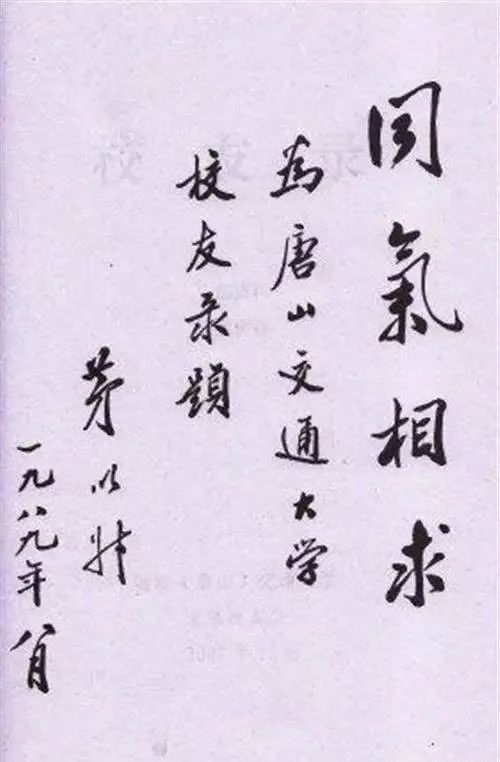 同氣相求
為唐山交通大学
校友录题
茅以昇
一九八九年八月